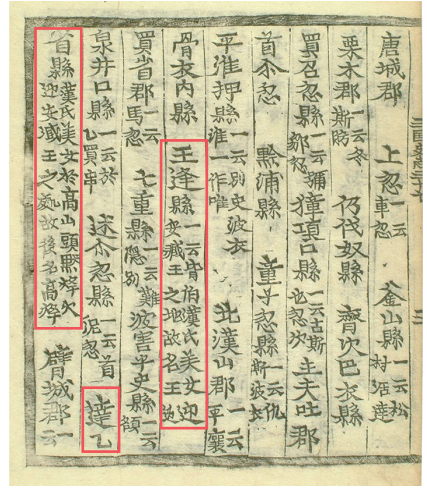 唐城郡 上忽一云車忽 釜山縣一云松村活達
栗木郡一云冬斯肹 仍伐奴縣 齊次巴衣縣
買召忽縣一云彌鄒忽 獐項口縣一云古斯也忽次 主夫吐郡
首尒忽 黔浦縣 童子忽縣一云仇斯波衣
平淮押縣一云別史波衣淮一作唯 北漢山郡一云平壤
骨衣內縣 王逢縣一云皆伯漢氏美女迎安臧王之地故名王逢
買省郡一云馬忽 七重縣一云難隱別 波害平史縣一云額
泉井口縣一云於乙買串 述尒忽縣一云首泥忽 達乙
省縣漢氏美女於高山頭點烽火迎安臧王之處故後名高烽 臂城郡一云